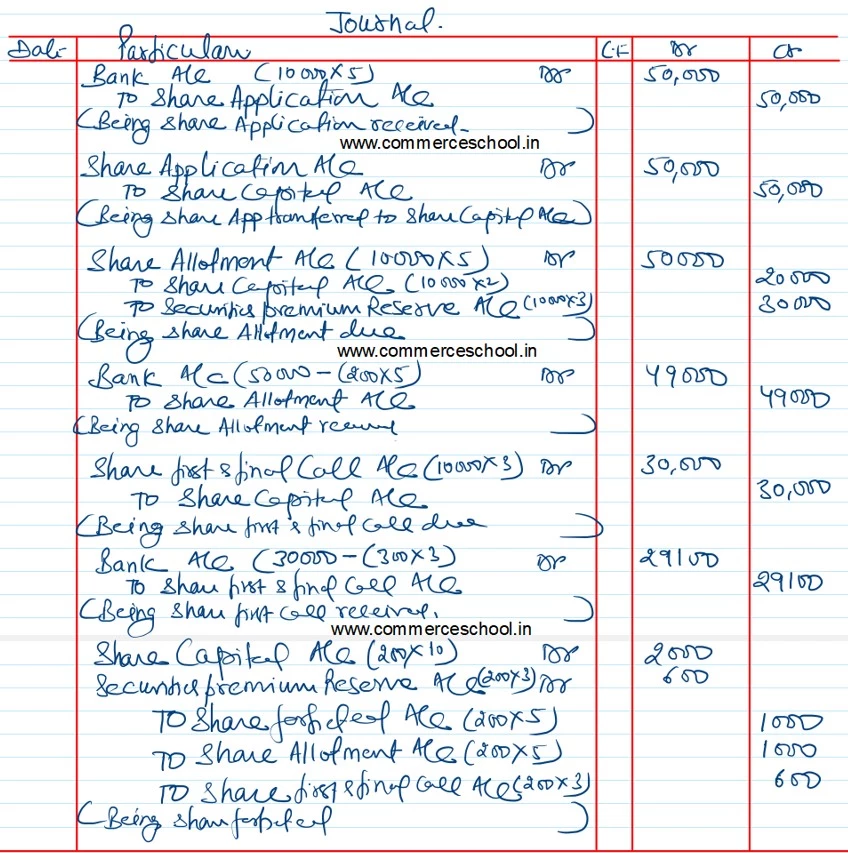 Journal.
Date Particulars L.F Dr Cr
Bank A/c (10000×5) Dr 50,000
To Share Application A/c 50,000
(Being Share Application received.)
www.commerceschool.in
Share Application A/c Dr 50,000
To Share Capital A/c 50,000
(Being Share App transferred to Share Capital A/c)
Share Allotment A/c (10000×5) Dr 50000
To Share Capital A/c (10000×2) 20000
To Securities premium Reserve A/c (1000×3) 30000
(Being Share Allotment due)
www.commerceschool.in
Bank A/c (50000-(200×5) Dr 49000
To Share Allotment A/c 49000
(Being Share Allotment)
Share first & final Call A/c (10000×3) Dr 30,000
To Share Capital A/c 30,000
(Being Share first & final Call due)
Bank A/c (30000-(300×3) Dr 29100
To Share first & final Call A/c 29100
(Being Share first Call received.)
www.commerceschool.in
Share Capital A/c (200×10) Dr 2000
Securities premium Reserve A/c (200×3) Dr 600
To Share forfeited A/c (200×5) 1000
To Share Allotment A/c (200×5) 1000
To Share first & final Call A/c (200×3) 600
(Being Share forfeited)